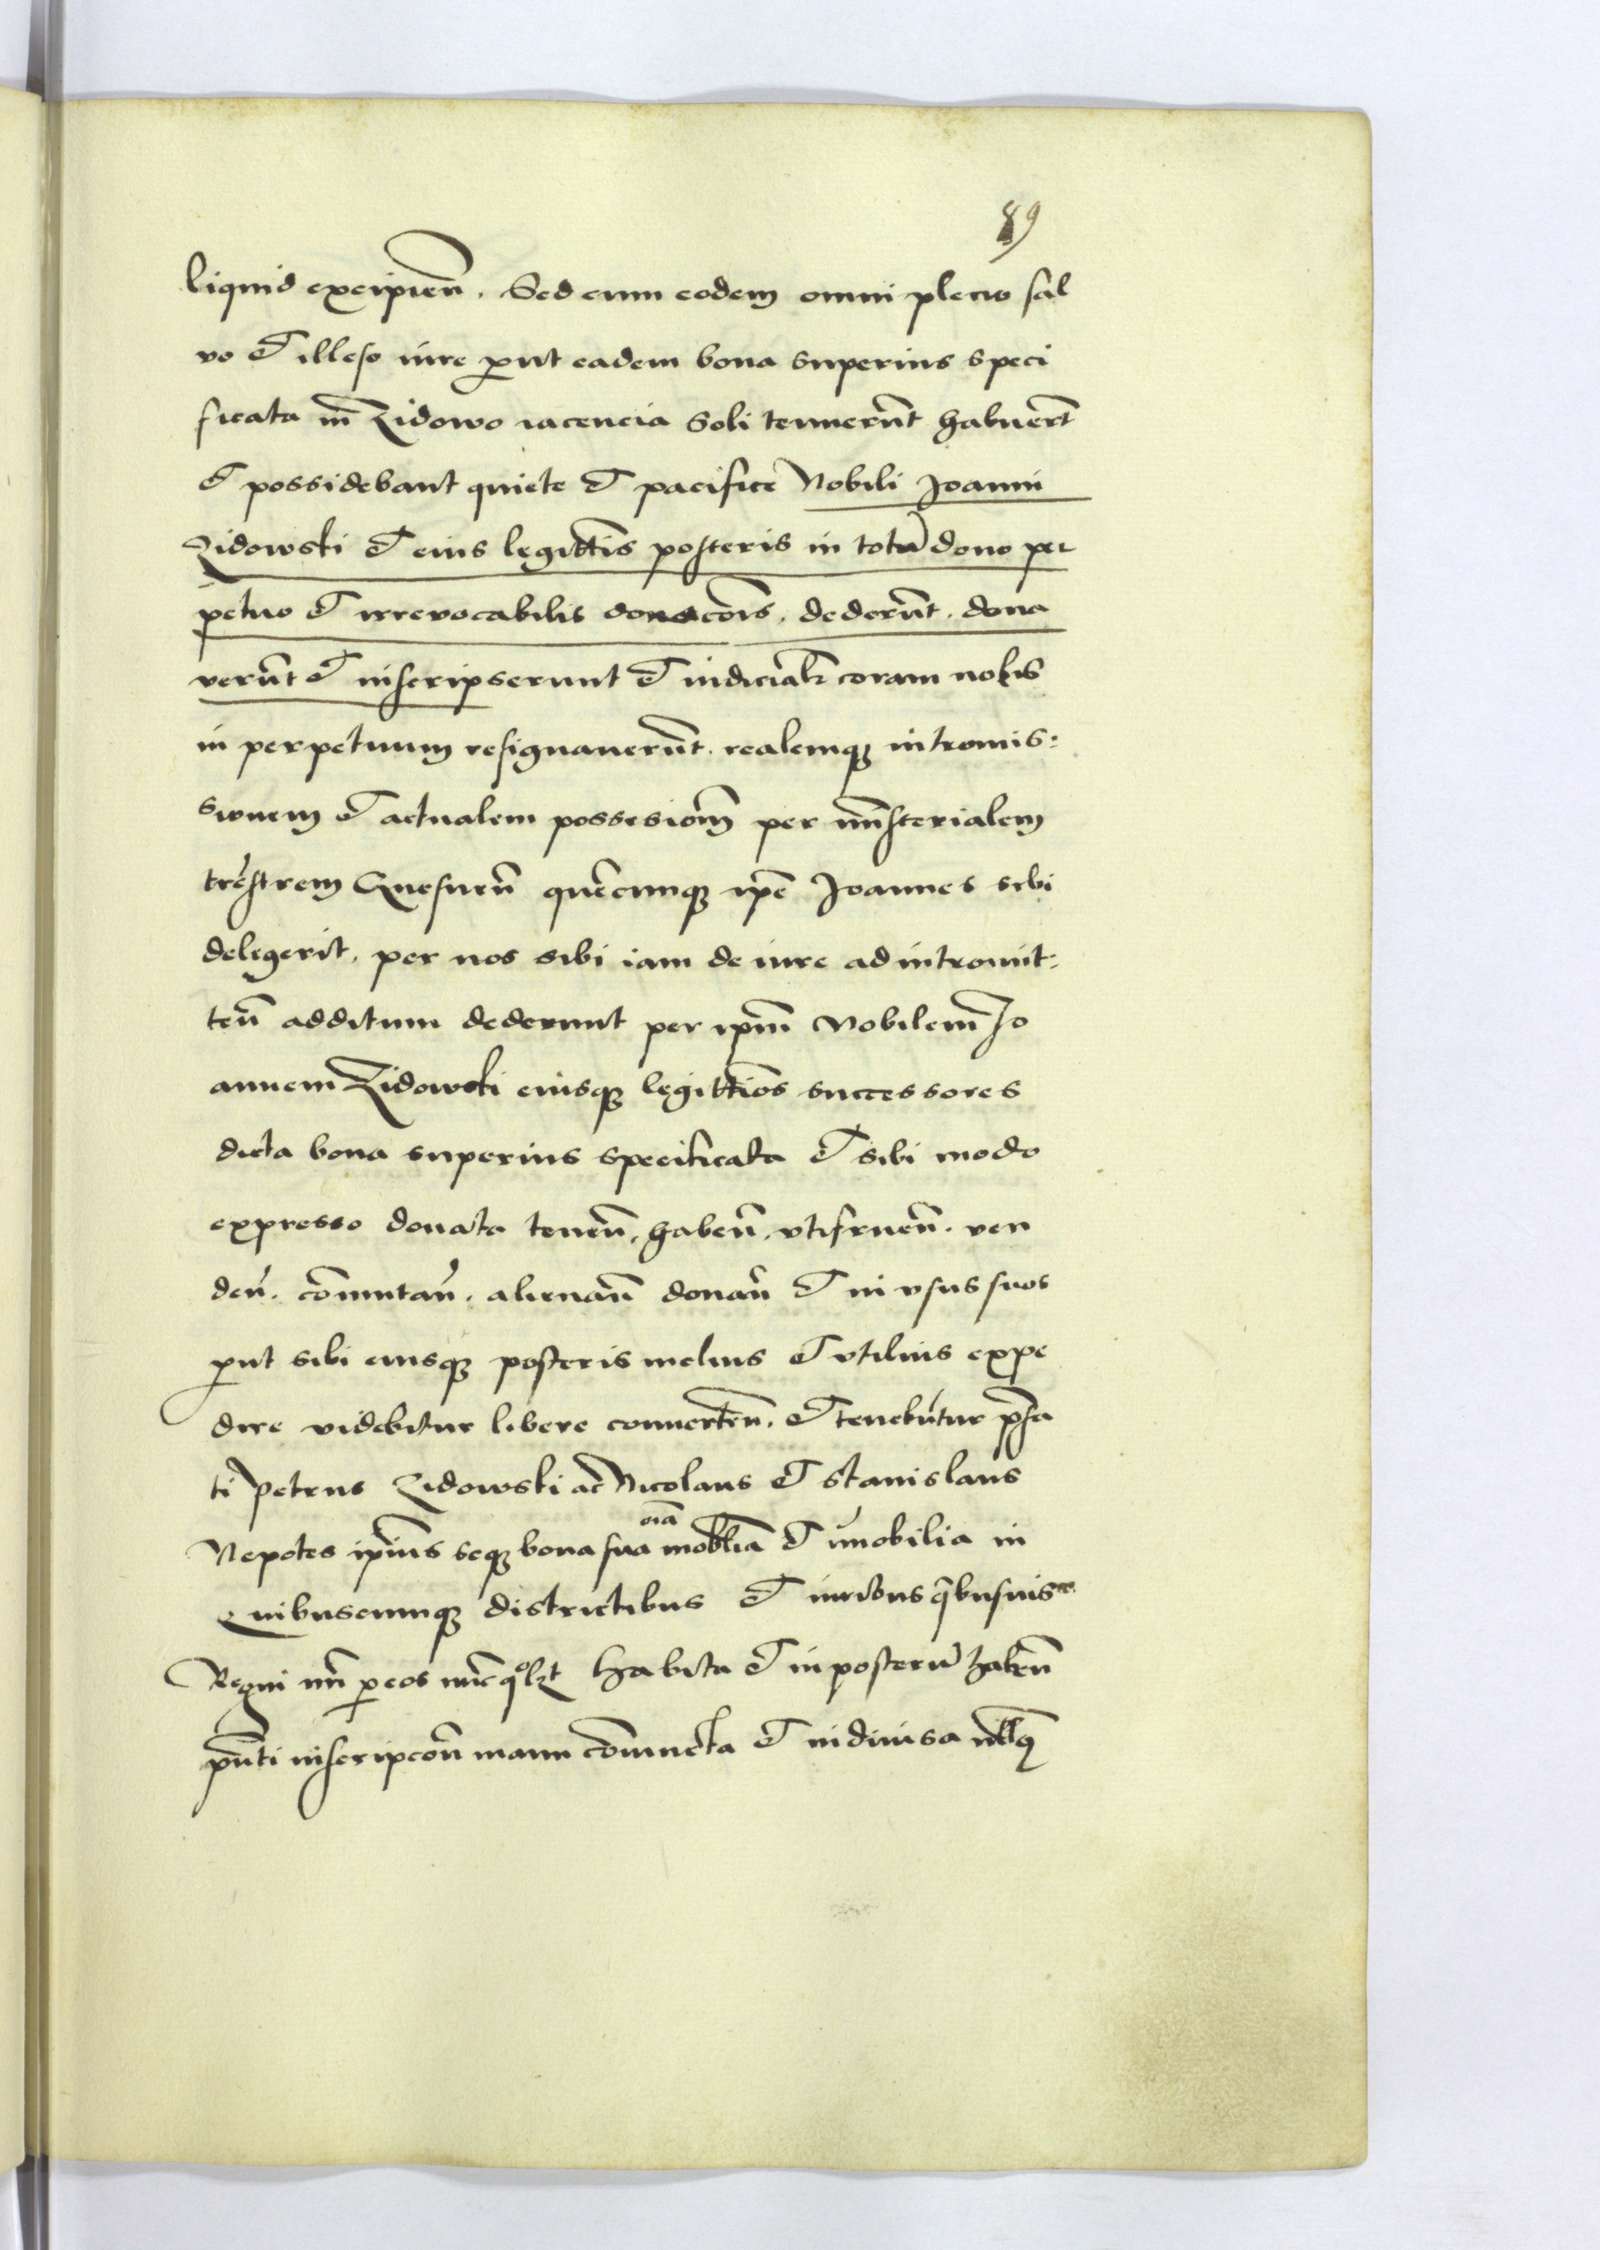 89
liquid excipien̄. Sed cum eodem omni pleno sal
vo et illeso iure p̄ut eadem bona superius speci
ficata in Zidowo iacencia soli tenuerūt habuerūt
et possidebant quiete et pacifice Nobili Joanni
Zidowski et eius legittīs posteris in totū dono per
petuo et irrevocabilis donacōis. dederūt. dona
verūt et inscripserunt et iudicialr coram nobis
in perpetuum resignaverūt. realemq; intromis:
sionem et actualem possesionē per ministerialem
trēstrem Gnesnen̄ quēcunq; ipē Joannes sibi
delegerit. per nos sibi iam de iure ad intromit:
ten̄ additum dederunt per ipm̄ Nobilem Jo
annem Zidowski eiusq; legittīos successores
dicta bona superius specificata et sibi modo
expresso donata tenen̄. haben̄. vtifruen̄. ven
den̄. cōmutan̄. alienan̄ donan̄ et in vsus suos
p̄ut sibi eiusq; posteris melius et vtilius expe
dire videbitur libere conuerten̄. et tenebūtur p̄fa
ti Petrus Zidowski ac Nicolaus et Stanislaus
Nepotes ipīus seq; bona sua oīa mobīlia et īmobilia in
Quibuscunq; districtibus et iuribus q̄busuis
Regni p̄ eos nūc habita et in posterū haben̄
p̄nti inscripcōn manu cōiuncta et indiuisa